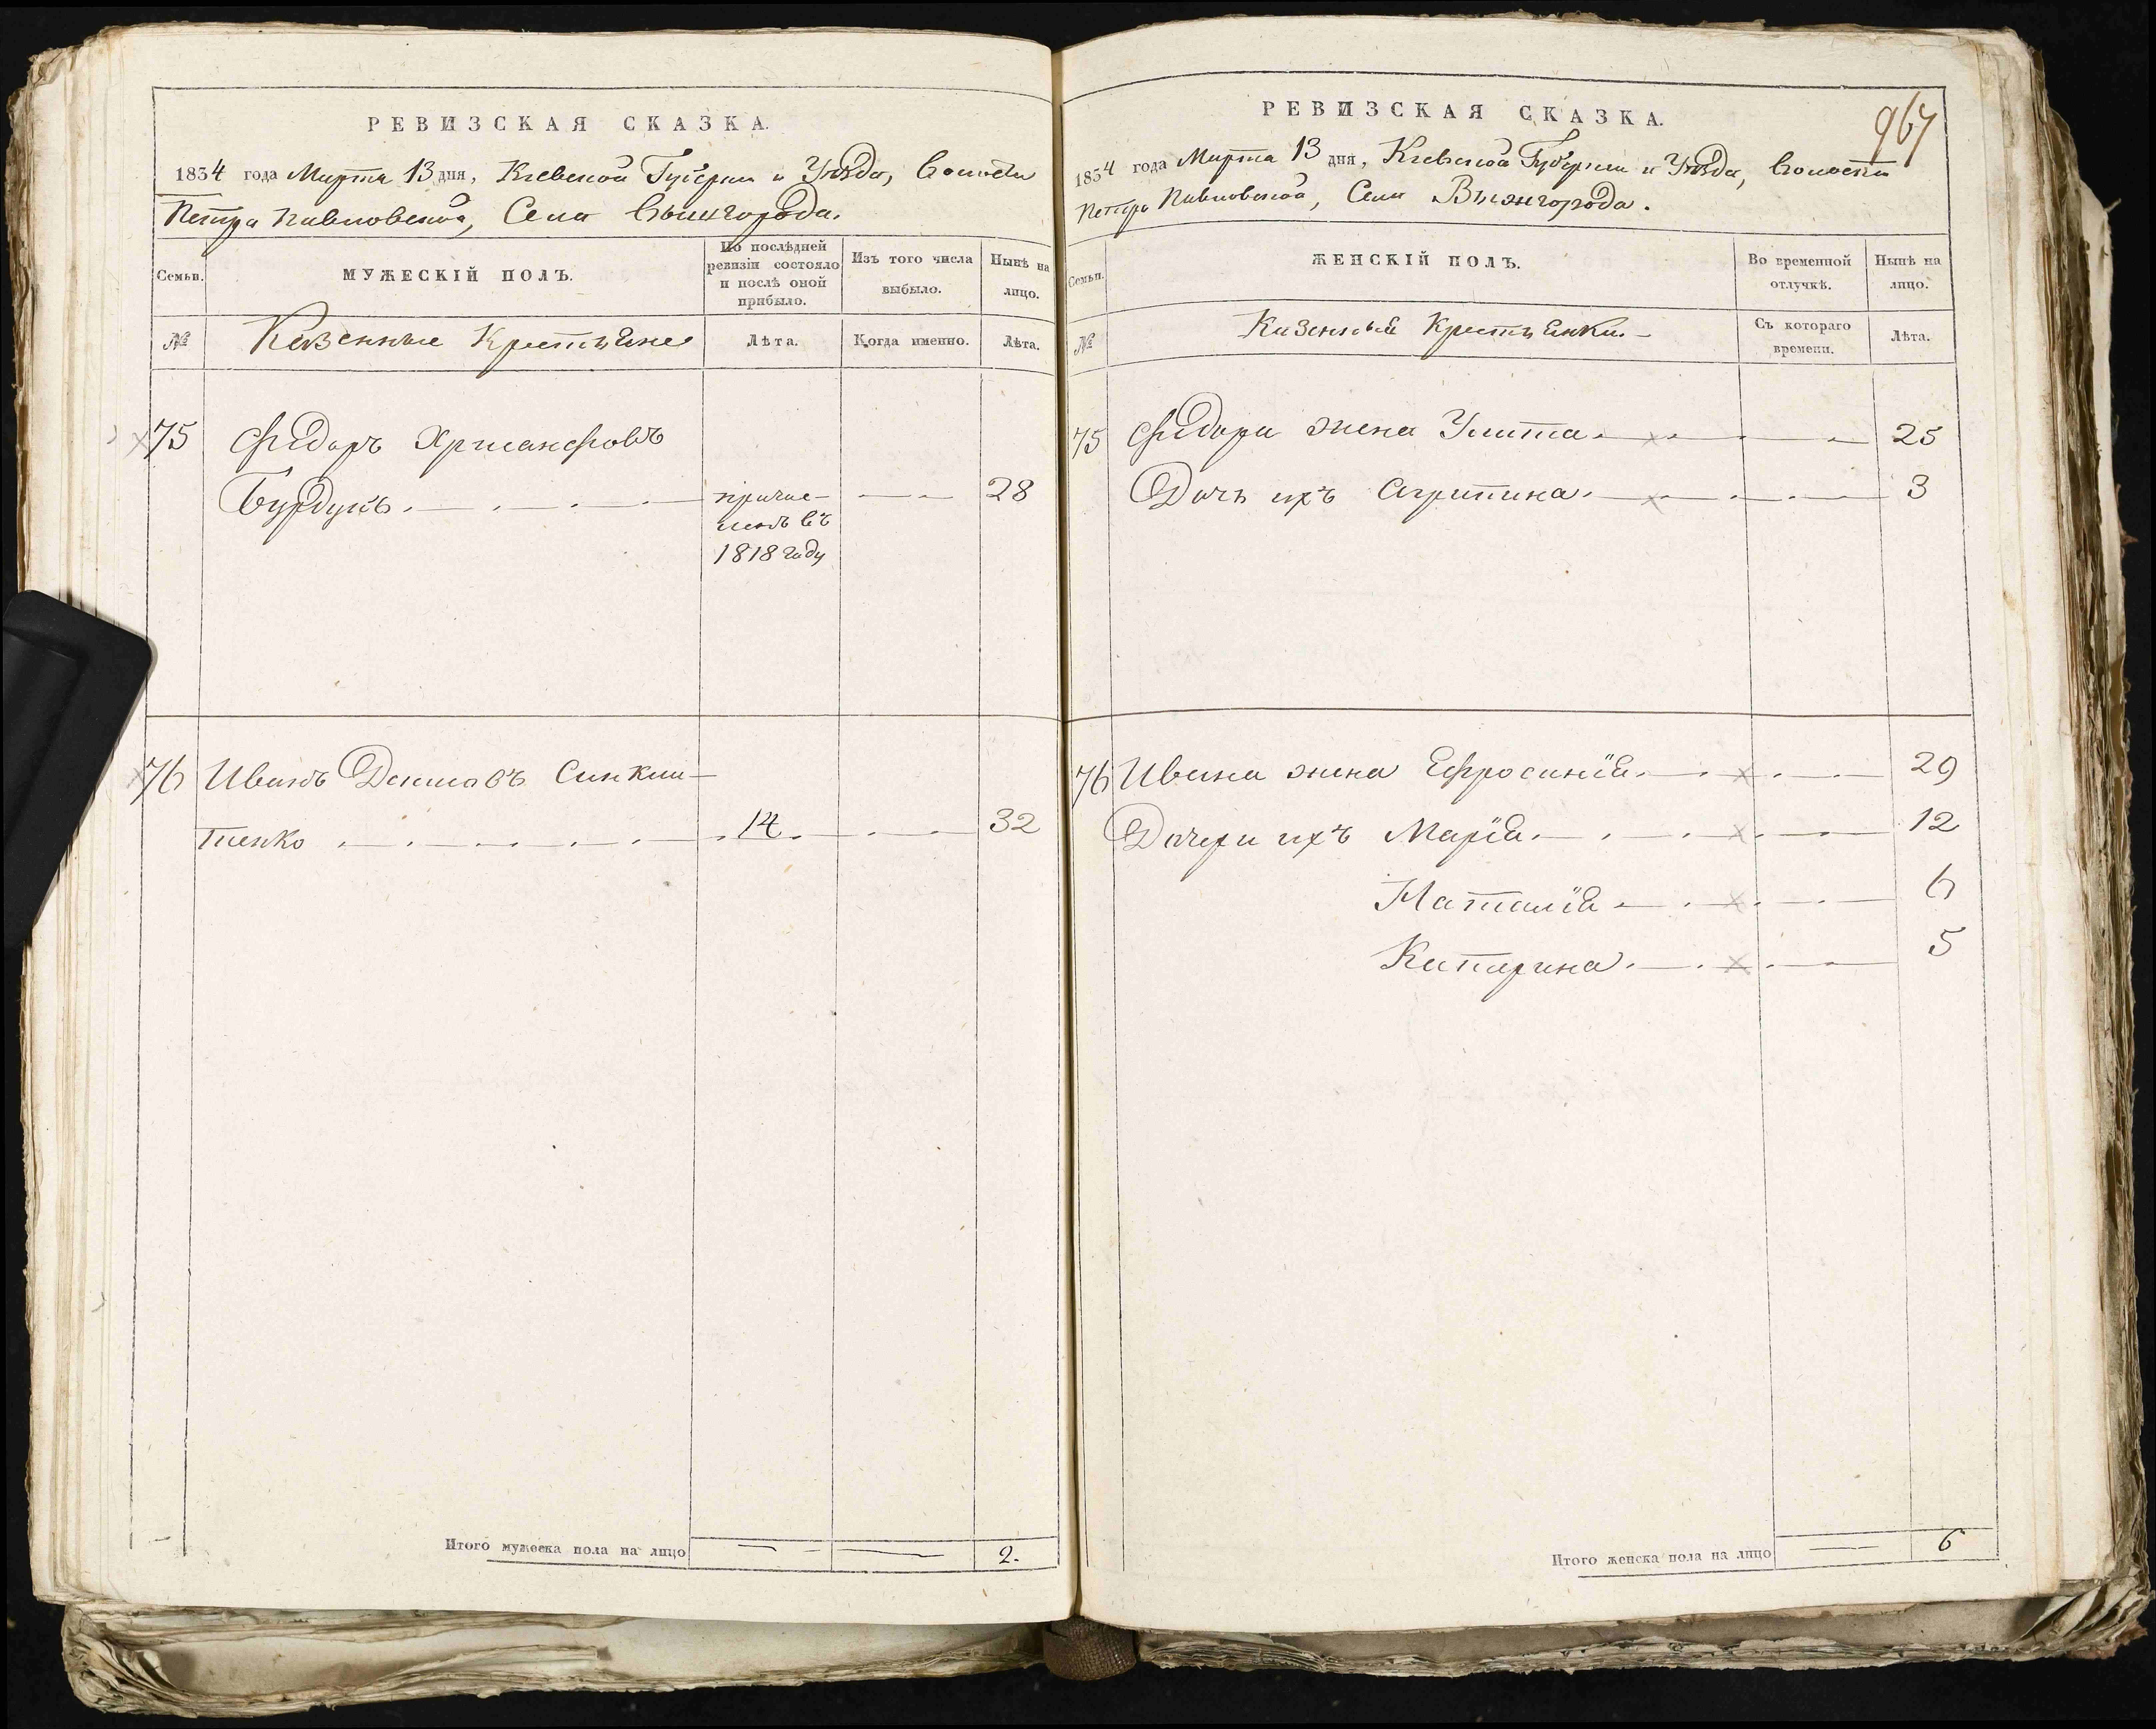 РЕВИЗСКАЯ СКАЗКА.
1834 года Марта 13 дня, Кіевской Губерніи и Уѣзда, Волости
Петра Павловской, Села Вышгорода.
Семьи.
МУЖЕСКІЙ ПОЛЪ.
По послѣдней ревизіи состояло и послѣ оной прибыло.
Изъ того числа выбыло.
Нынѣ на лицо.
№
Казенные Крестьяне
Лѣта.
Когда именно.
Лѣта.
75 Фидоръ Хрисанфовъ
Бурдукъ 28
причис-
ленъ въ
1818 году
76 Иванъ Даниловъ
тенко 14 32
Итого мужеска пола на лицо 2.
967
РЕВИЗСКАЯ СКАЗКА.
1834 года Марта 13 дня, Кіевской Губерніи и Уѣзда, Волости
Петра Павловской, Села Вышгорода.
Семьи.
ЖЕНСКІЙ ПОЛЪ.
Во временной отлучкѣ.
Нынѣ на лицо.
№
Казенные Крестьянки
Съ котораго времени.
Лѣта.
75 Фидора жена Улита 25
Дочь ихъ Агрипина 3
76 Ивана жена Ефросинія 29
Дочери ихъ Марія 12
Наталія 6
Катерина 5
Итого женска пола на лицо 6